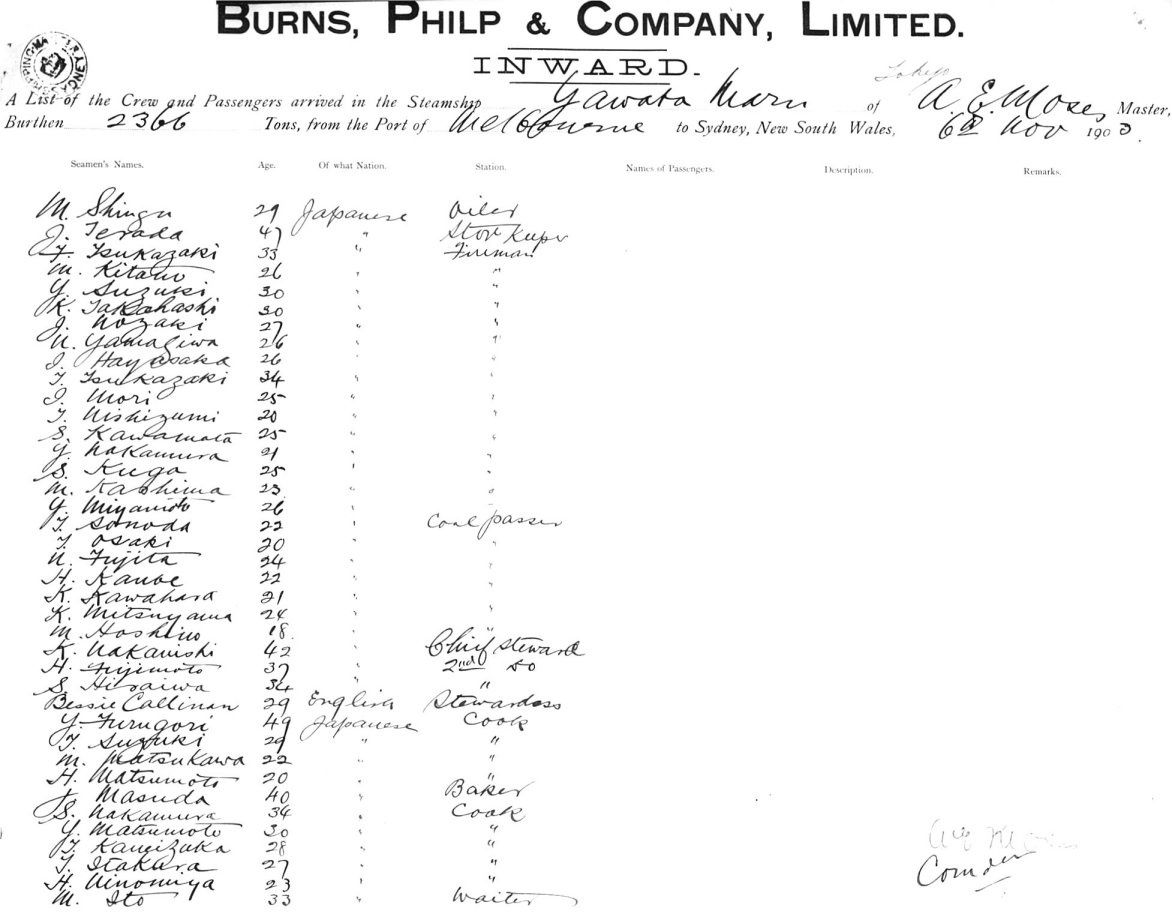 BURNS, PHILP & COMPANY, LIMITED.
INWARD.
Tokyo
A List of the Crew and Passengers arrived in the Steamship Yawata Maru of A. E. Moses Master,
Burthen 2366 Tons, from the Port of Melbourne to Sydney, New South Wales, 6th Nov 1903.
Seamen's Names. Age. Of what Nation. Station. Names of Passengers. Description. Remarks.
M. Shingu 29 Japanese Oiler
J. Terada 47 " Stor Keeper
T. Tsukazaki 33 " Fireman
M. Kitano 26 " "
Y. Suzuki 30 " "
K. Takahashi 30 " "
J. Nozaki 27 " "
U. Yamagiwa 26 " "
I. Hayasaka 26 " "
T. Tsukazaki 34 " "
I. Mori 25 " "
T. Nishizumi 20 " "
S. Kawamata 25 " "
Y. Nakamura 21 " "
S. Kuga 25 " "
M. Kashima 23 " "
Y. Miyamoto 26 " "
T. Sonoda 22 " Coal passer
T. Osaki 20 " "
U. Fujita 24 " "
H. Kanbe 22 " "
K. Kawahara 21 " "
K. Mitsuyama 24 " "
M. Hoshino 18 " "
K. Nakanishi 42 " Chief steward
H. Fujimoto 37 " 2nd do
S. Hiraiwa 34 " "
Bessie Callinan 29 English Stewardess
Y. Furugori 49 Japanese Cook
T. Suzuki 29 " "
M. Matsukawa 22 " "
H. Matsumoto 20 " "
T. Masuda 40 " Baker
S. Nakamura 34 " Cook
Y. Matsumoto 30 " "
T. Kameizuka 28 " "
T. Itakura 27 " "
H. Ninomiya 23 " "
M. Ito 33 " Waiter
Comder